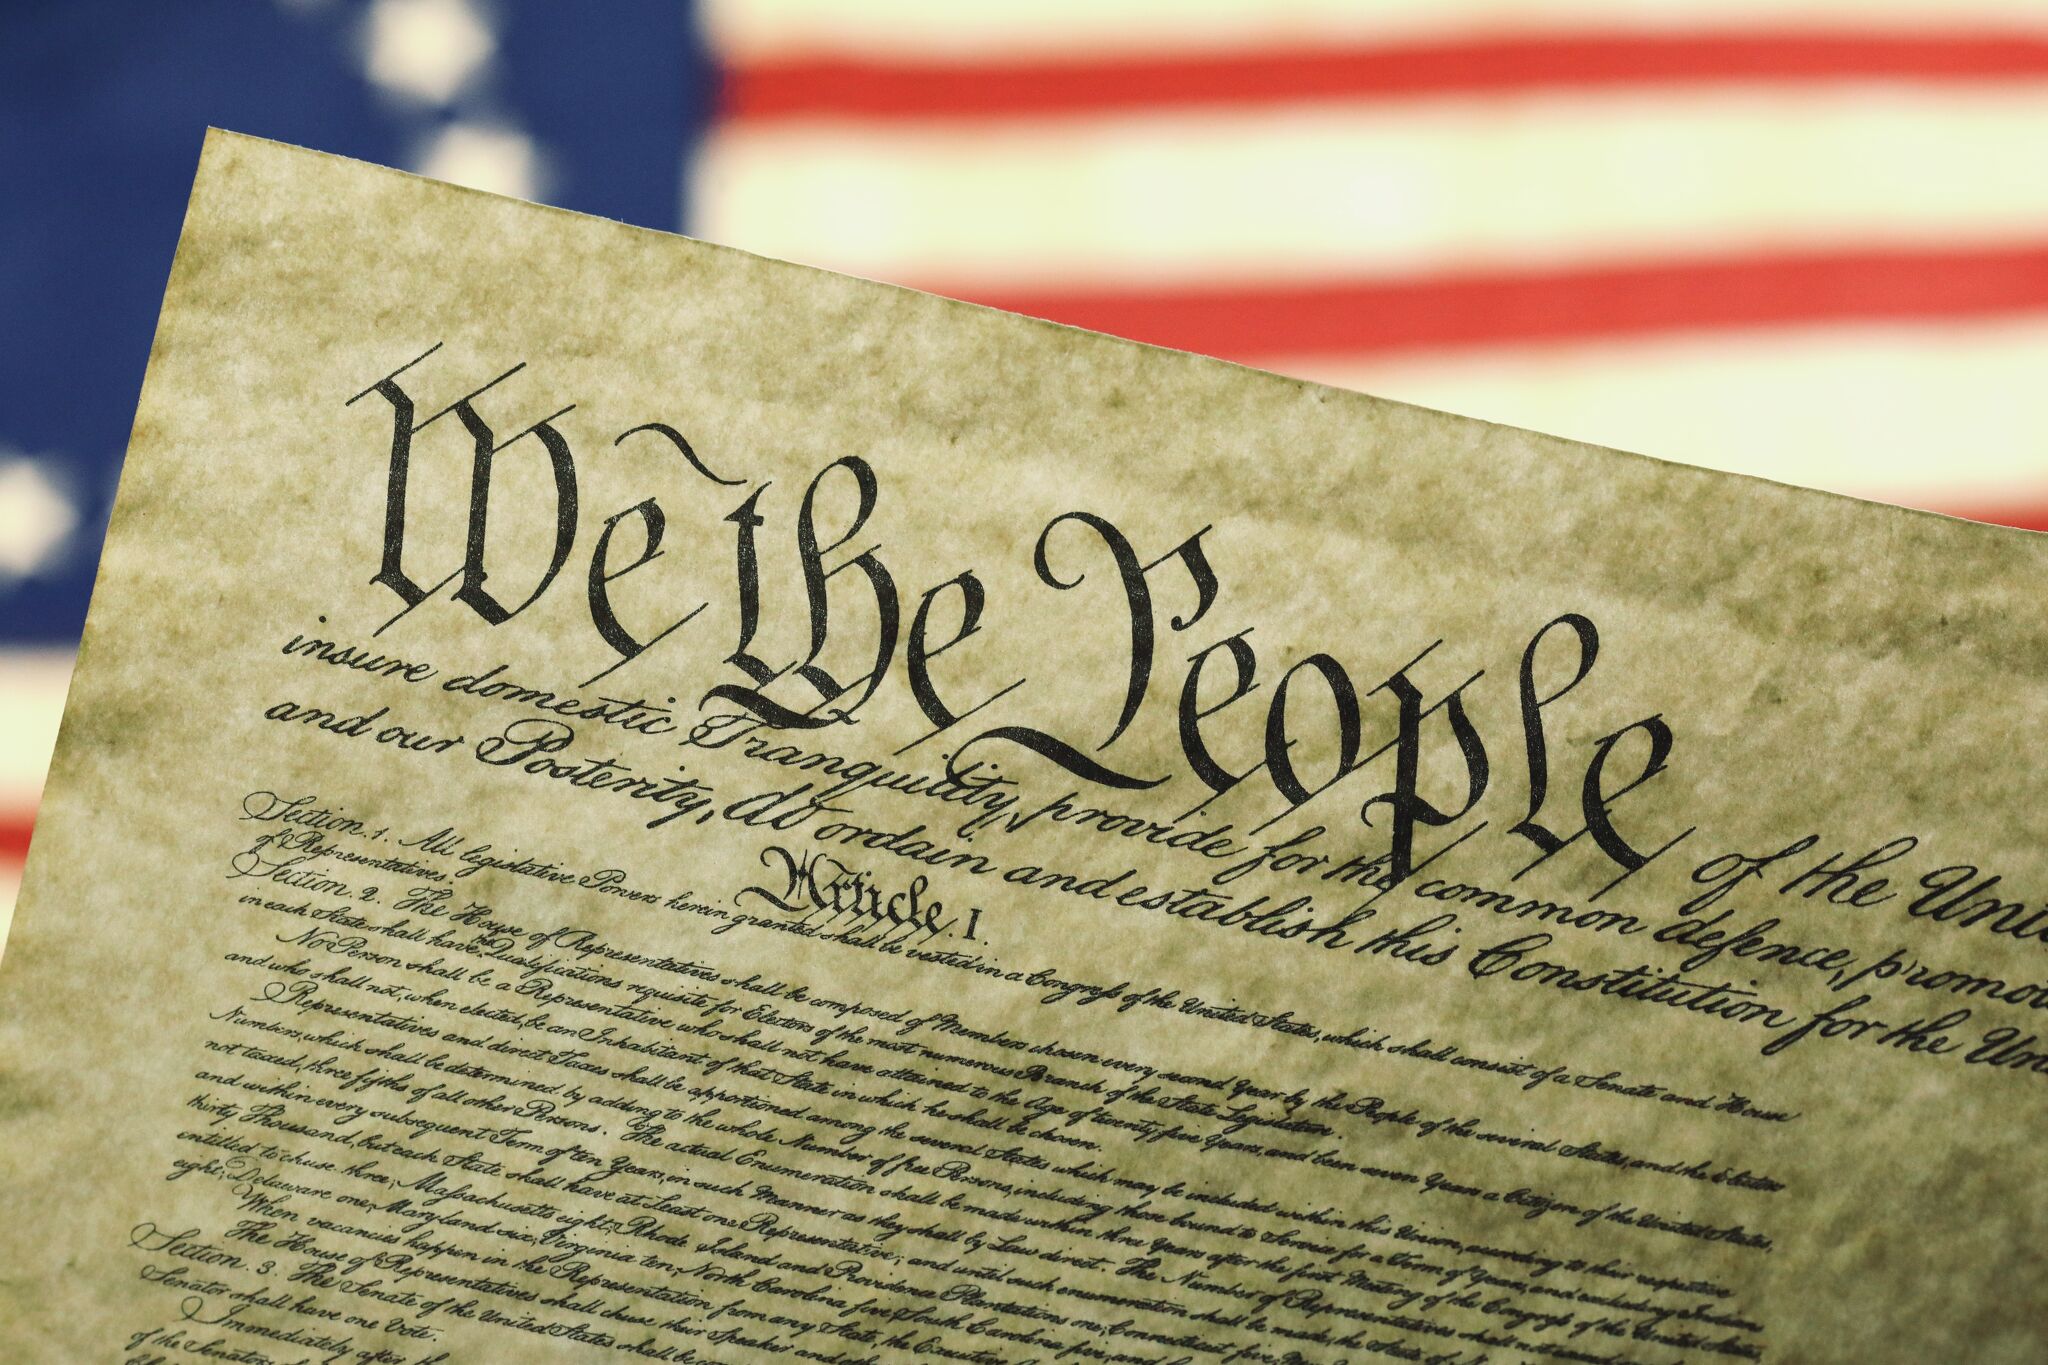 We the People of the Uni
insure domestic Tranquility, provide for the common defence, promo
and our Posterity, do ordain and establish this Constitution for the Un
Article. I.
Section. 1. All legislative Powers herein granted shall be vested in a Congress of the United States, which shall consist of a Senate and House
of Representatives.
Section. 2. The House of Representatives shall be composed of Members chosen every second Year by the People of the several States, and the Electors
in each State shall have the Qualifications requisite for Electors of the most numerous Branch of the State Legislature.
No Person shall be a Representative who shall not have attained to the Age of twenty five Years, and been seven Years a Citizen of the United States,
and who shall not, when elected, be an Inhabitant of that State in which he shall be chosen.
Representatives and direct Taxes shall be apportioned among the several States which may be included within this Union, according to their respective
Numbers, which shall be determined by adding to the whole Number of free Persons, including those bound to Service for a Term of Years, and excluding Indians
not taxed, three fifths of all other Persons. The actual Enumeration shall be made within three Years after the first Meeting of the Congress of the United States,
and within every subsequent Term of ten Years, in such Manner as they shall by Law direct. The Number of Representatives shall not exceed one for every
thirty Thousand, but each State shall have at Least one Representative; and until such enumeration shall be made, the State of N
entitled to chuse three, Massachusetts eight, Rhode Island and Providence Plantations one, Connecticut five,
eight, Delaware one, Maryland six, Virginia ten, North Carolina five, South Carolina five, and
When vacancies happen in the Representation from any State, the Executive
The House of Representatives shall chuse their Speaker and
Section. 3. The Senate of the United States shall be
Senator shall have one Vote.
Immediately after
of the Senators